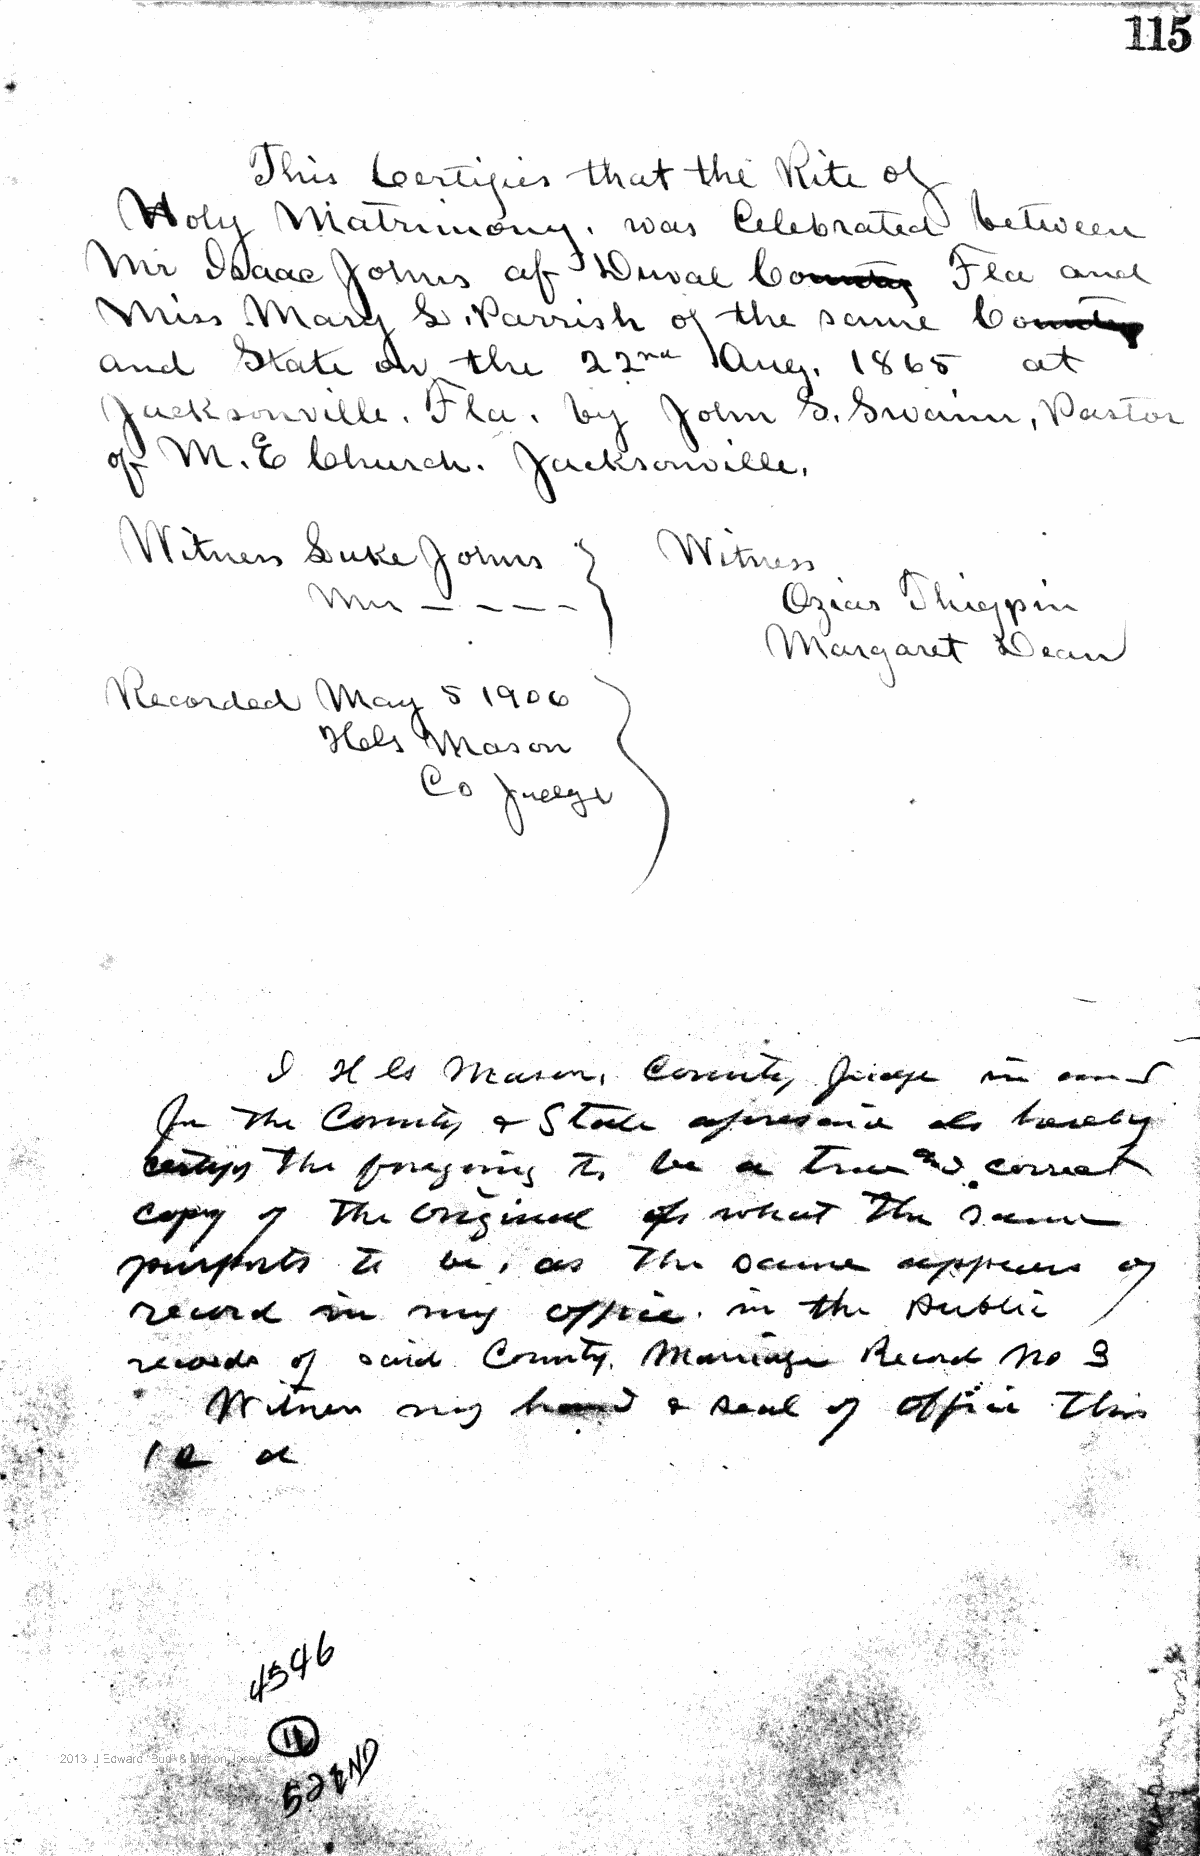 115
This Certifies that the Rite of
Holy Matrimony. was Celebrated between
Mr Isaac Johns of Duval County Fla and
Miss Mary S. Parrish of the same County
and State on the 22nd Aug. 1865 at
Jacksonville. Fla. by John S. Swaim, Pastor
of M. E Church. Jacksonville.
Witness Luke Johns Witness
Mrs — — — — Ozias Thigpin
Margaret Dean
Recorded May 5 1906
Mason
Co Judge
I Mason, County Judge in and
for the County & State aforesaid do hereby
certify the foregoing to be a true and correct
copy of the original of what the same
purports to be, as the same appears of
record in my office. in the Public
records of said County. Marriage Record No 3
Witness my hand & seal of office this
12 d
4546
11
52 END
2013 J Edward "Bud" & Marion Josey ©